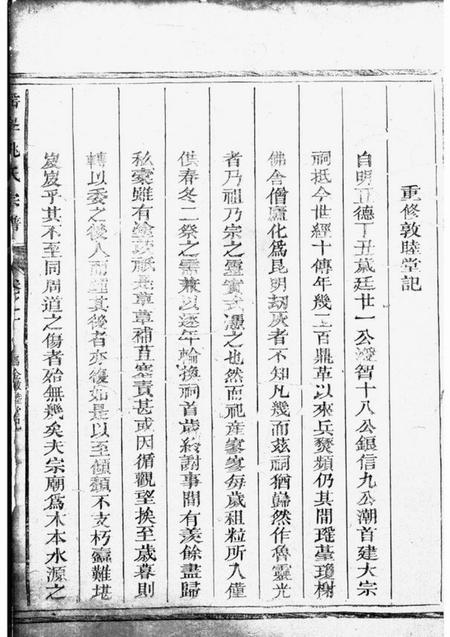 重修敦睦堂記
自明正德丁丑歲廷廿一公濬智十八公銀信九公潮首建大宗
祠抵今世經十傳年幾二百鼎革以來兵燹頻仍其間瑤臺瓊榭
佛舍僧廬化為昆明劫灰者不知凡幾而茲祠猶巋然作魯靈光
者乃祖乃宗之靈實式憑之也然而祀產寥寥每歲租粒所入僅
供春冬二祭之需兼以逐年輪換祠首歲終謝事間有羨餘盡歸
私槖雖有塗茨祇是草草補苴塞責甚或因循觀望挨至歲暮則
轉以委之後人而踵其後者亦復如是以至傾頹不支朽蠹難堪
岌岌乎其不至同周道之傷者殆無幾矣夫宗廟為木本水源之
氏宗譜